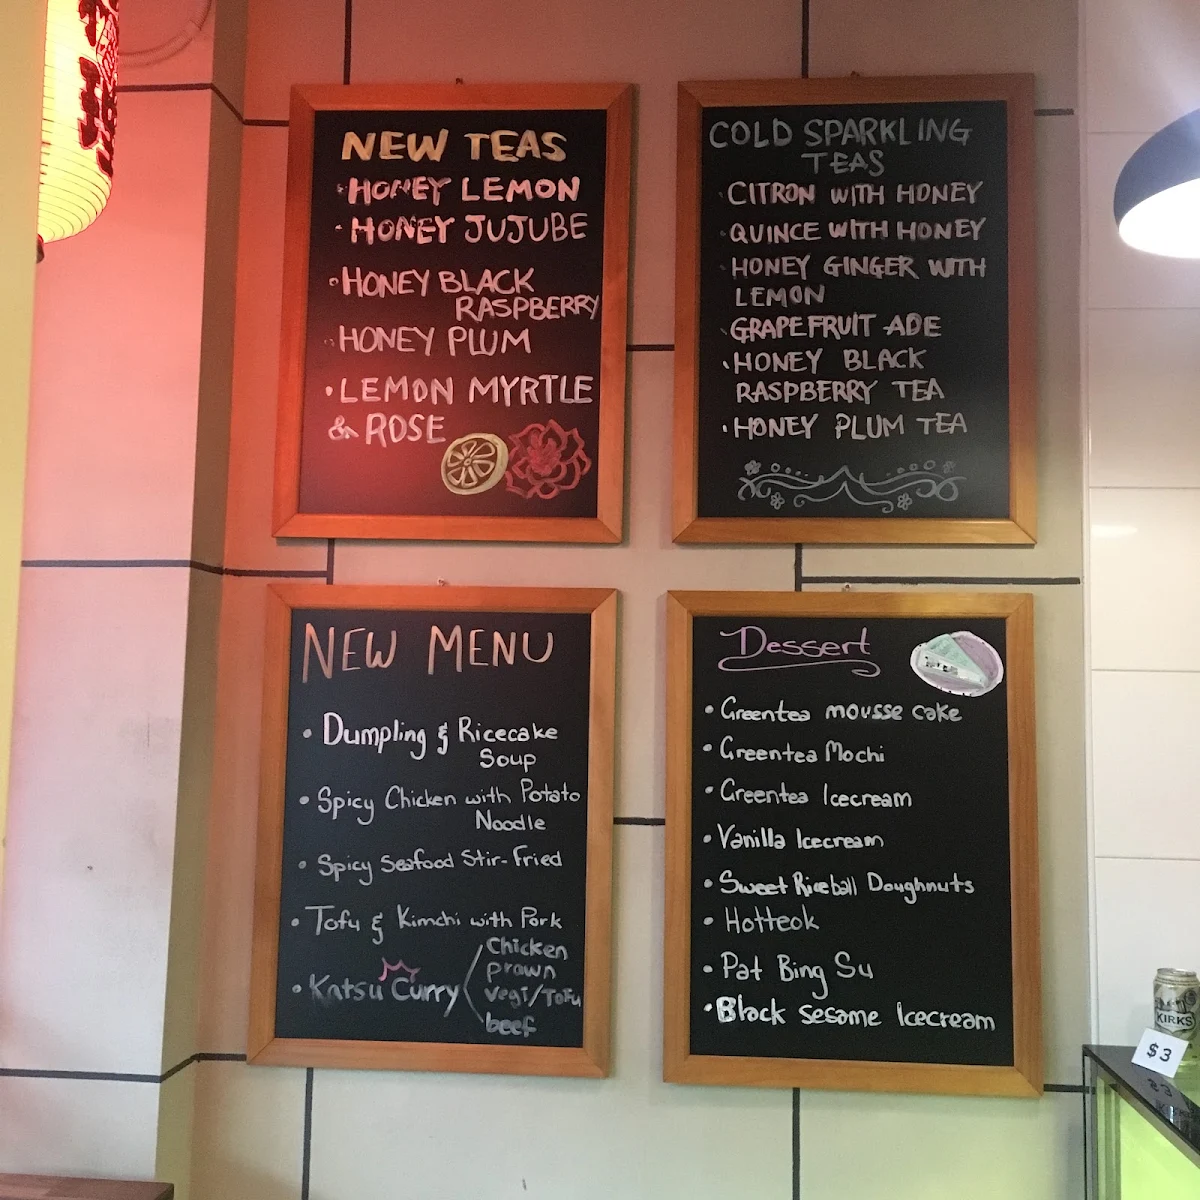 NEW TEAS
• HONEY LEMON
• HONEY JUJUBE
• HONEY BLACK
RASPBERRY
• HONEY PLUM
• LEMON MYRTLE
& ROSE
COLD SPARKLING
TEAS
• CITRON WITH HONEY
• QUINCE WITH HONEY
• HONEY GINGER WITH
LEMON
• GRAPEFRUIT ADE
• HONEY BLACK
RASPBERRY TEA
• HONEY PLUM TEA
NEW MENU
• Dumpling & Ricecake
Soup
• Spicy Chicken with Potato
Noodle
• Spicy Seafood Stir-Fried
• Tofu & Kimchi with Pork
• Katsu Curry
Chicken
prawn
vegi/Tofu
beef
Dessert
• Greentea mousse cake
• Greentea Mochi
• Greentea Icecream
• Vanilla Icecream
• Sweet Riceball Doughnuts
• Hotteok
• Pat Bing Su
• Black sesame Icecream
KIRKS
$3